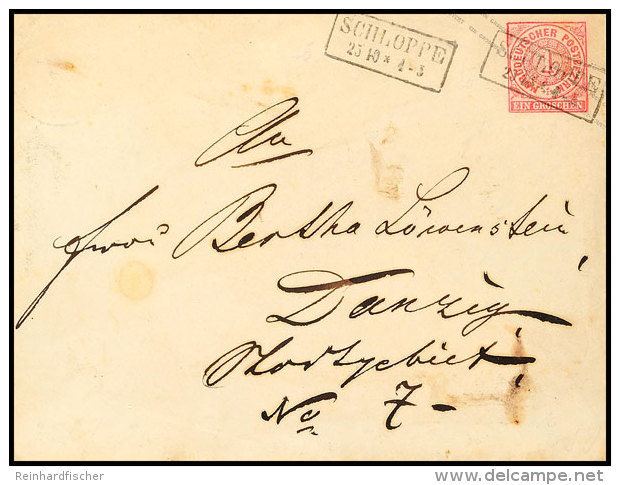 SCHLOPPE
25 10 * 4-5
NORDDEUTSCHER POSTBEZIRK
1
EIN GROSCHEN
An
Frau Bertha Löwenstein,
Danzig,
Stadtgebiet,
No 7-
Reinhardfischer
www.delcampe.net